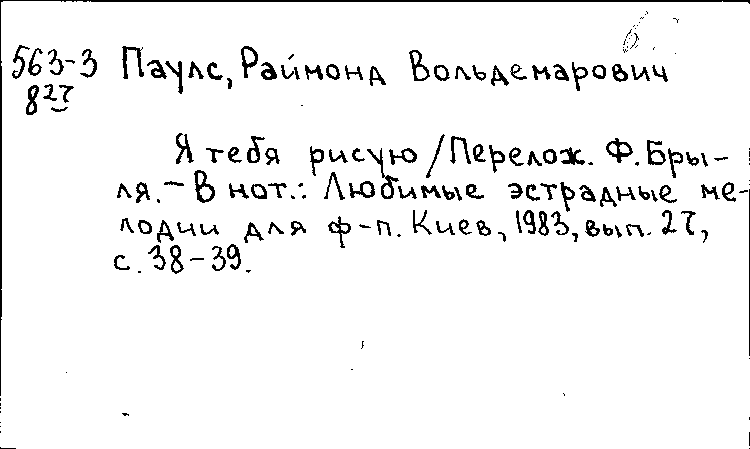 563-3 Паулс, Раймонд Вольдемарович
8 27
Я тебя рисую / Перелож. Ф. Бры-
ля. - В нот.: Любимые эстрадные ме-
лодии для ф-п. Киев, 1983, вып. 27,
с. 38-39.